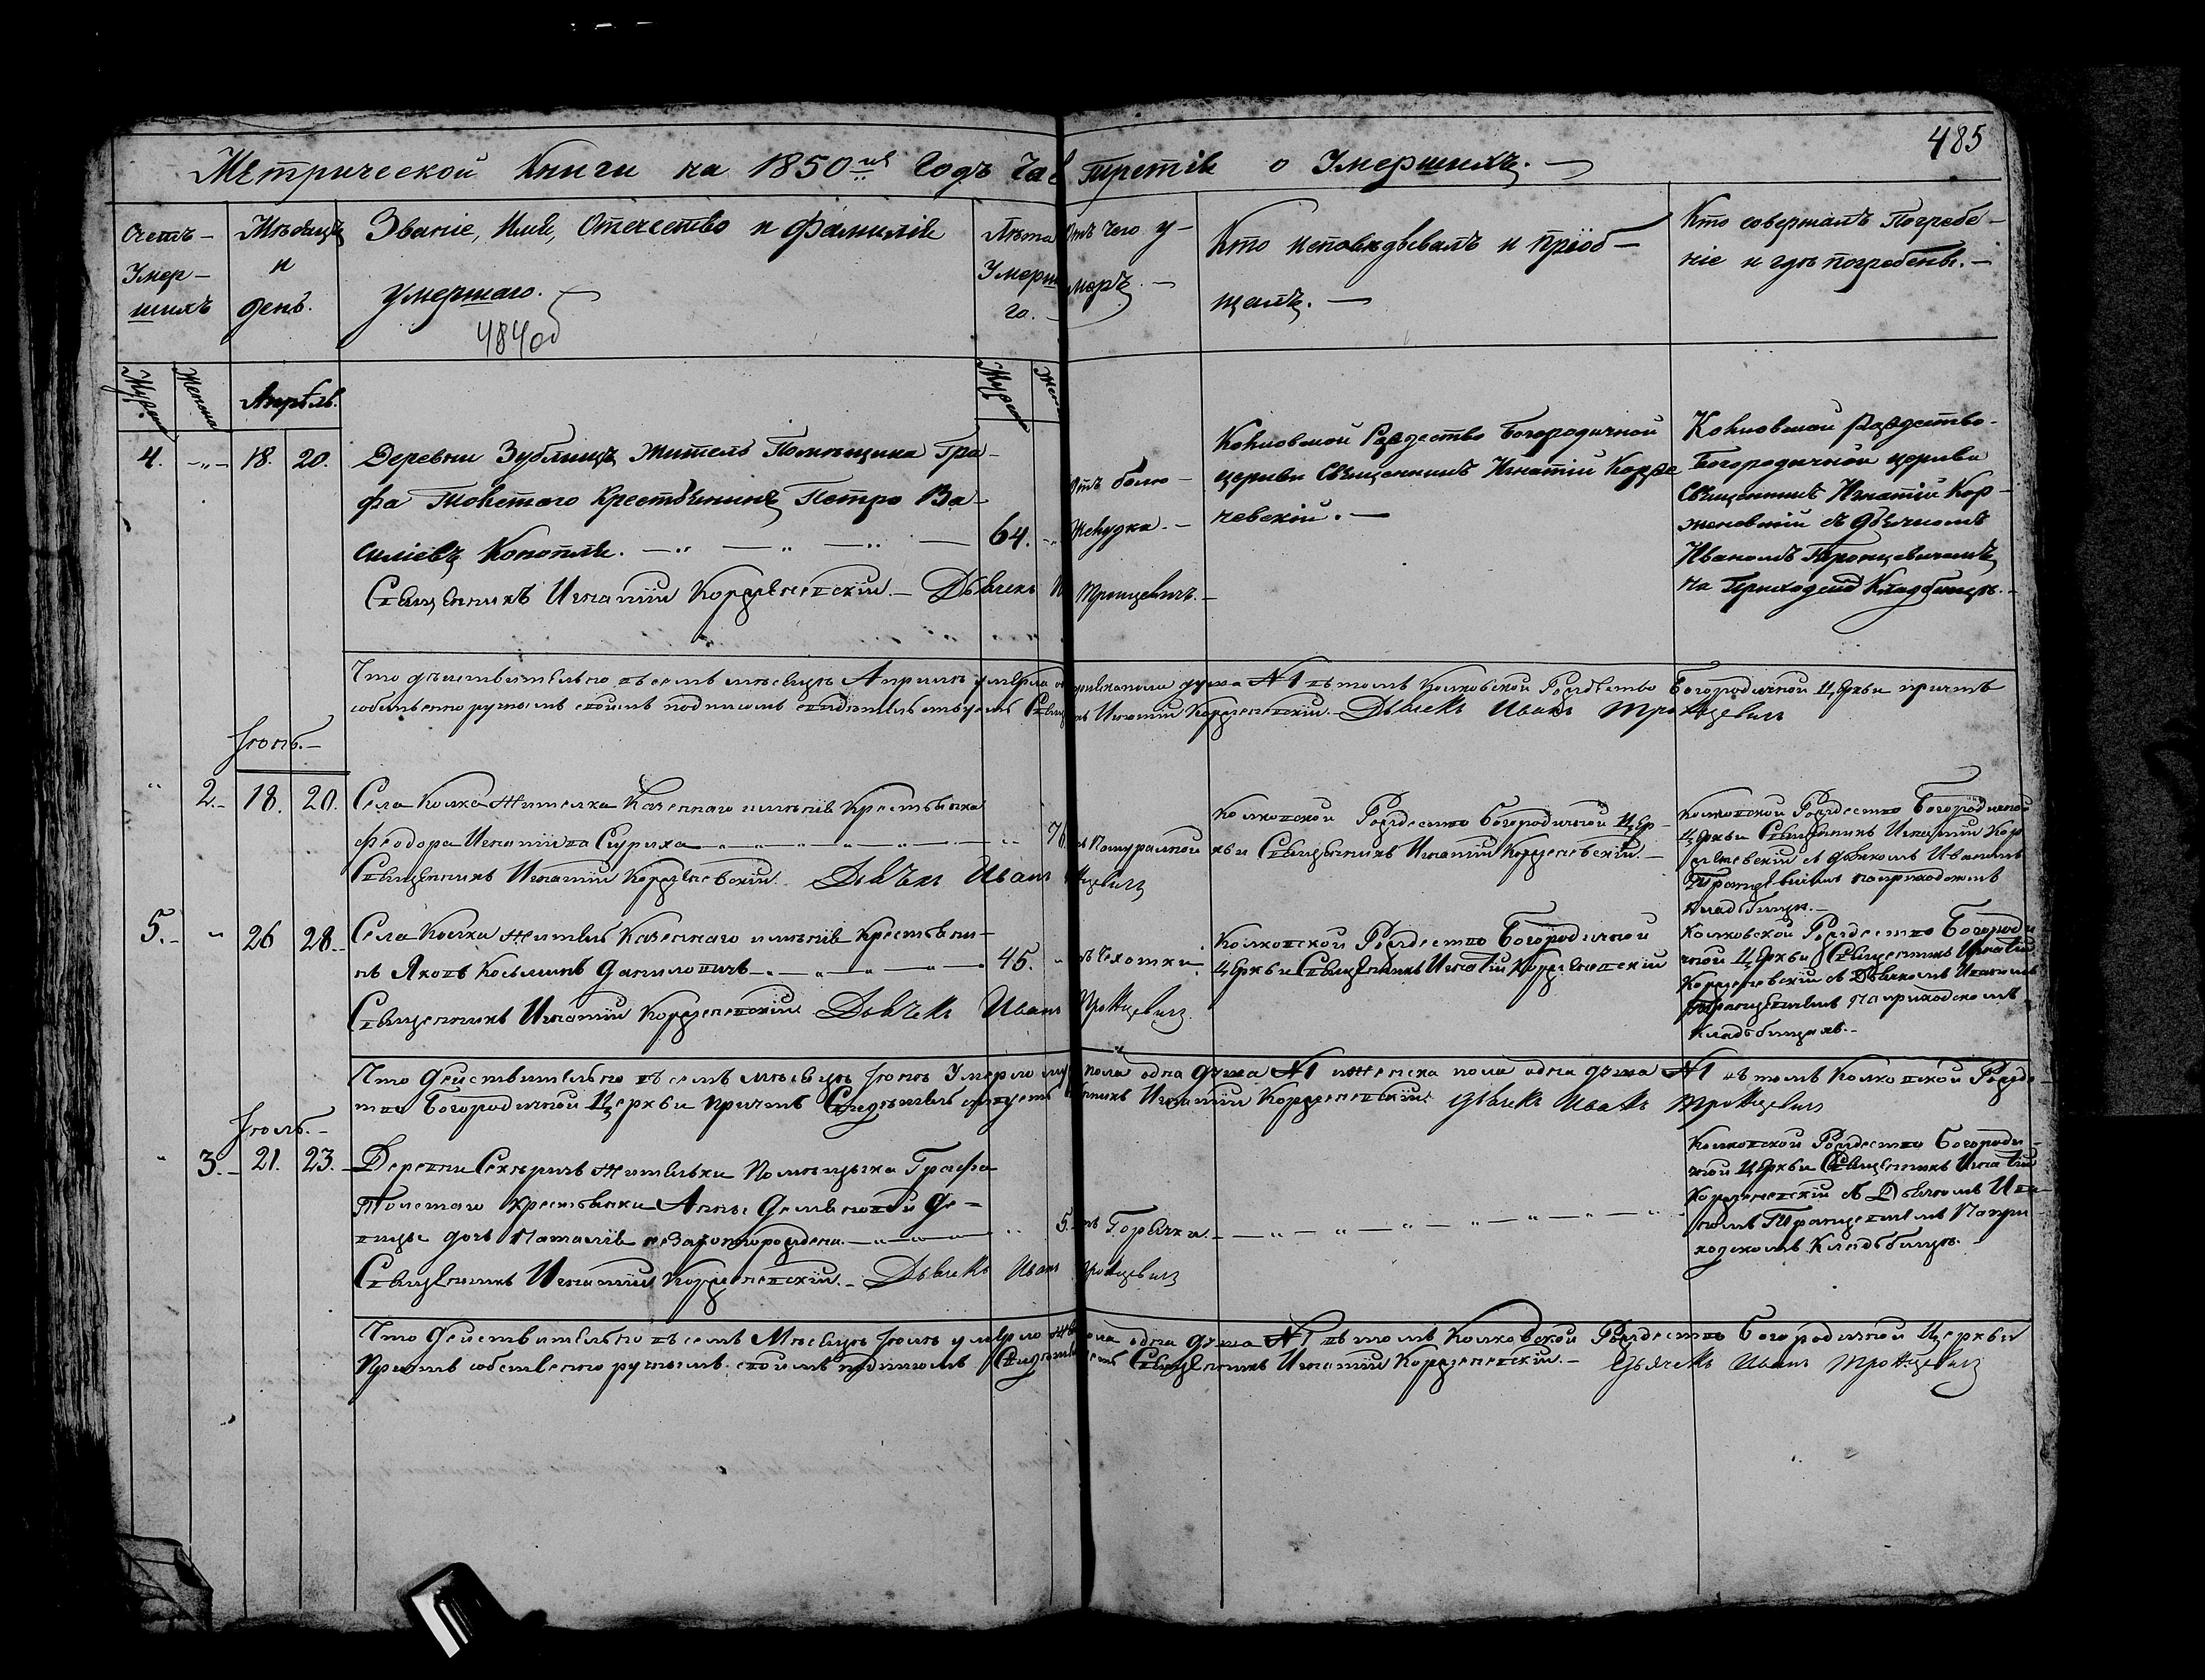 485
Метрической Книги на 1850й Годъ Час Третія о Умершихъ.
Счетъ Умер-шихъ
Мѣсяцъ и день.
Званіе, Имя, Отечество и Фамилія
умершаго.
484об
Лѣта Умерша го.
Отъ чего у-
меръ.
Кто исповѣдывалъ и пріоб-
щалъ.
Кто совершалъ Погребе-
ніе и гдѣ погребены.
Апрѣль.
4. 18. 20.
Деревни Зубляицъ житель Помѣщика Гра-
фа Толстаго Крестьянинъ Петро Ва-
силіевъ Конопля.
64.
Отъ боли
Желудка.
Священникъ Игнатій Корженевскій. Дьячекъ Тронцевичъ.
Колковской Рождество Богородичной
церкви Священникъ Игнатій Корже
невскій.
Колковской Рождество-
Богородичной церкви
Священникъ Игнатій Кор-
женевскій съ Дьячкомъ
Иваномъ Тронцевичемъ
на Приходском Кладбищѣ.
Что дѣиствительно въ семъ мѣсяцѣ Априлѣ умерла пола душа №1 въ томъ Колковской Рождество Богородичной Церкви причтъ
собственноручнымъ своимъ подписомъ свидѣтельствуетъ Игнатій Корженевскій. Дьячекъ Иванъ Тронцевичъ
Іюнь.
2. 18. 20.
Села Колка Жителка Казеннаго имѣнія Крестьянка
Феодора Игнатіива Сцуриха
Натуралной
Священникъ Игнатій Корженевскій. Дьячекъ Иванъ
Колковской Рождество Богородичной Цер-
кви Священникъ Игнатій Корженевскій.
Колковской Рождество Богородичной
Церкви Священникъ Игнатій Кор
женевскій съ дьячкомъ Иваномъ
Тронцевичемъ на приходскомъ
Кладбищѣ.
5. 26 28.
Села Колка житель Казеннаго имѣнія Крестьяни-
нъ Яковъ Косьминъ Даниловичъ
45.
Чехотки
Священникъ Игнатій Корженевскій Дьячекъ Иванъ Тронцевичъ
Колковской Рождество Богородичной
Церкви Священникъ Игнатій Корженевскій
Колковской Рождество Богороди
чной Церкви Священникъ Игнатій
Корженевскій съ Дьячкомъ Иваномъ
Тронцевичемъ на приходскомъ
Кладьбищахъ.
Что Дѣиствительно въ семъ мѣсяцѣ Іюнѣ Умерло пола одна душа №1 и женска пола одна душа №1 въ томъ Колковской Рожде-
тво Богородичной Церкви Причтъ Свидѣтельствуетъ Игнатій Корженевскій. Дьячекъ Иванъ Тронцевичъ
Іюль.
3. 21. 23.
Деревни Секѣричъ Жителки Помѣщыка Графа
Толстаго Крестьянки Анны Демяновой Де-
вицы дочь Наталія незаконорождена.
5. Горячки.
Священникъ Игнатій Корженевскій. Дьячекъ Иванъ Тронцевичъ
Колковской Рождество Богороди-
чной Церкви Священникъ Игнатій
Корженевскій съ Дьячкомъ Ива-
номъ Тронцевичемъ На при-
ходскомъ Кладьбищѣ.
Что Дѣиствительно въ семъ Мѣсяцѣ Іюлѣ умерло пола одна душа №1 въ томъ Колковской Рождество Богородичной Церкви
Причтъ собственноручнымъ своимъ подписомъ Священникъ Игнатій Корженевскій. Дьячекъ Иванъ Тронцевичъ